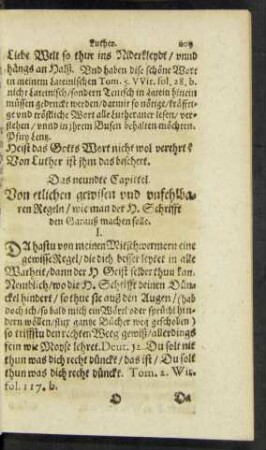 Luther. 209
Liebe Welt so thur ins Niderkleydt / vnnd
hängs an Halß. Vnd haben dise schöne Wort
in meinem Lateinischen Tom. 5. VVit. fol. 28. b.
nicht Lateinisch / sondern Teutsch im Latein hinein
müssen gedruckt werden / darmit so nötige / kräffti-
ge vnd tröstliche Wort alle Lutheraner lesen / ver-
stehen / vnnd in jhrem Busen behalten möchten.
Pfuy Lentz.
Heist das Gotts Wort nicht wol verehrt?
Von Luther ist jhm das beschert.
Das neundte Capittel.
Von etlichen gewisen vnd vnfehlba-
ren Regeln / wie man der H. Schrifft
den Garauß machen solle.
I.
DA hastu von meinen Mitschwermern eine
gewisse Regel / die dich besser leytet in alle
Warheit / dann der H Geist selber thun kan.
Nemblich / wo die H. Schrifft deinen Dün-
ckel hindert / so thue sie auß den Augen / (hab
doch ich / so bald mich ein Wörtl oder sprüchl hin-
dern wöllen / flux gantze Bücher weg geschoben)
so triffstu den rechten Weg gewiß / allerdings
fein wie Moyse lehret. Deut. 12. Du solt nit
thun was dich recht dünckt / das ist / Du solt
thun was dich recht dünckt. Tom. 2. Wit.
fol. 117. b.
O Da